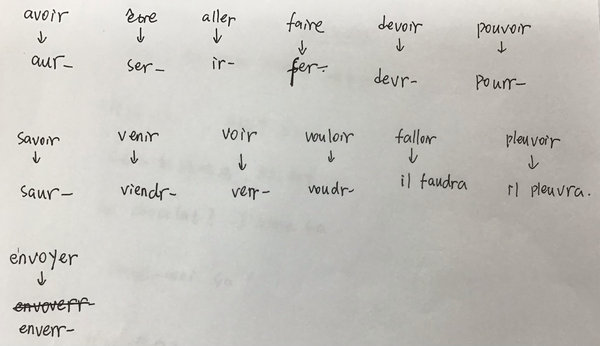 avoir être aller faire devoir pouvoir
aur- ser- ir- fer- devr- pourr-
savoir venir voir vouloir falloir pleuvoir
saur- viendr- verr- voudr- il faudra il pleuvra.
envoyer
enverr-